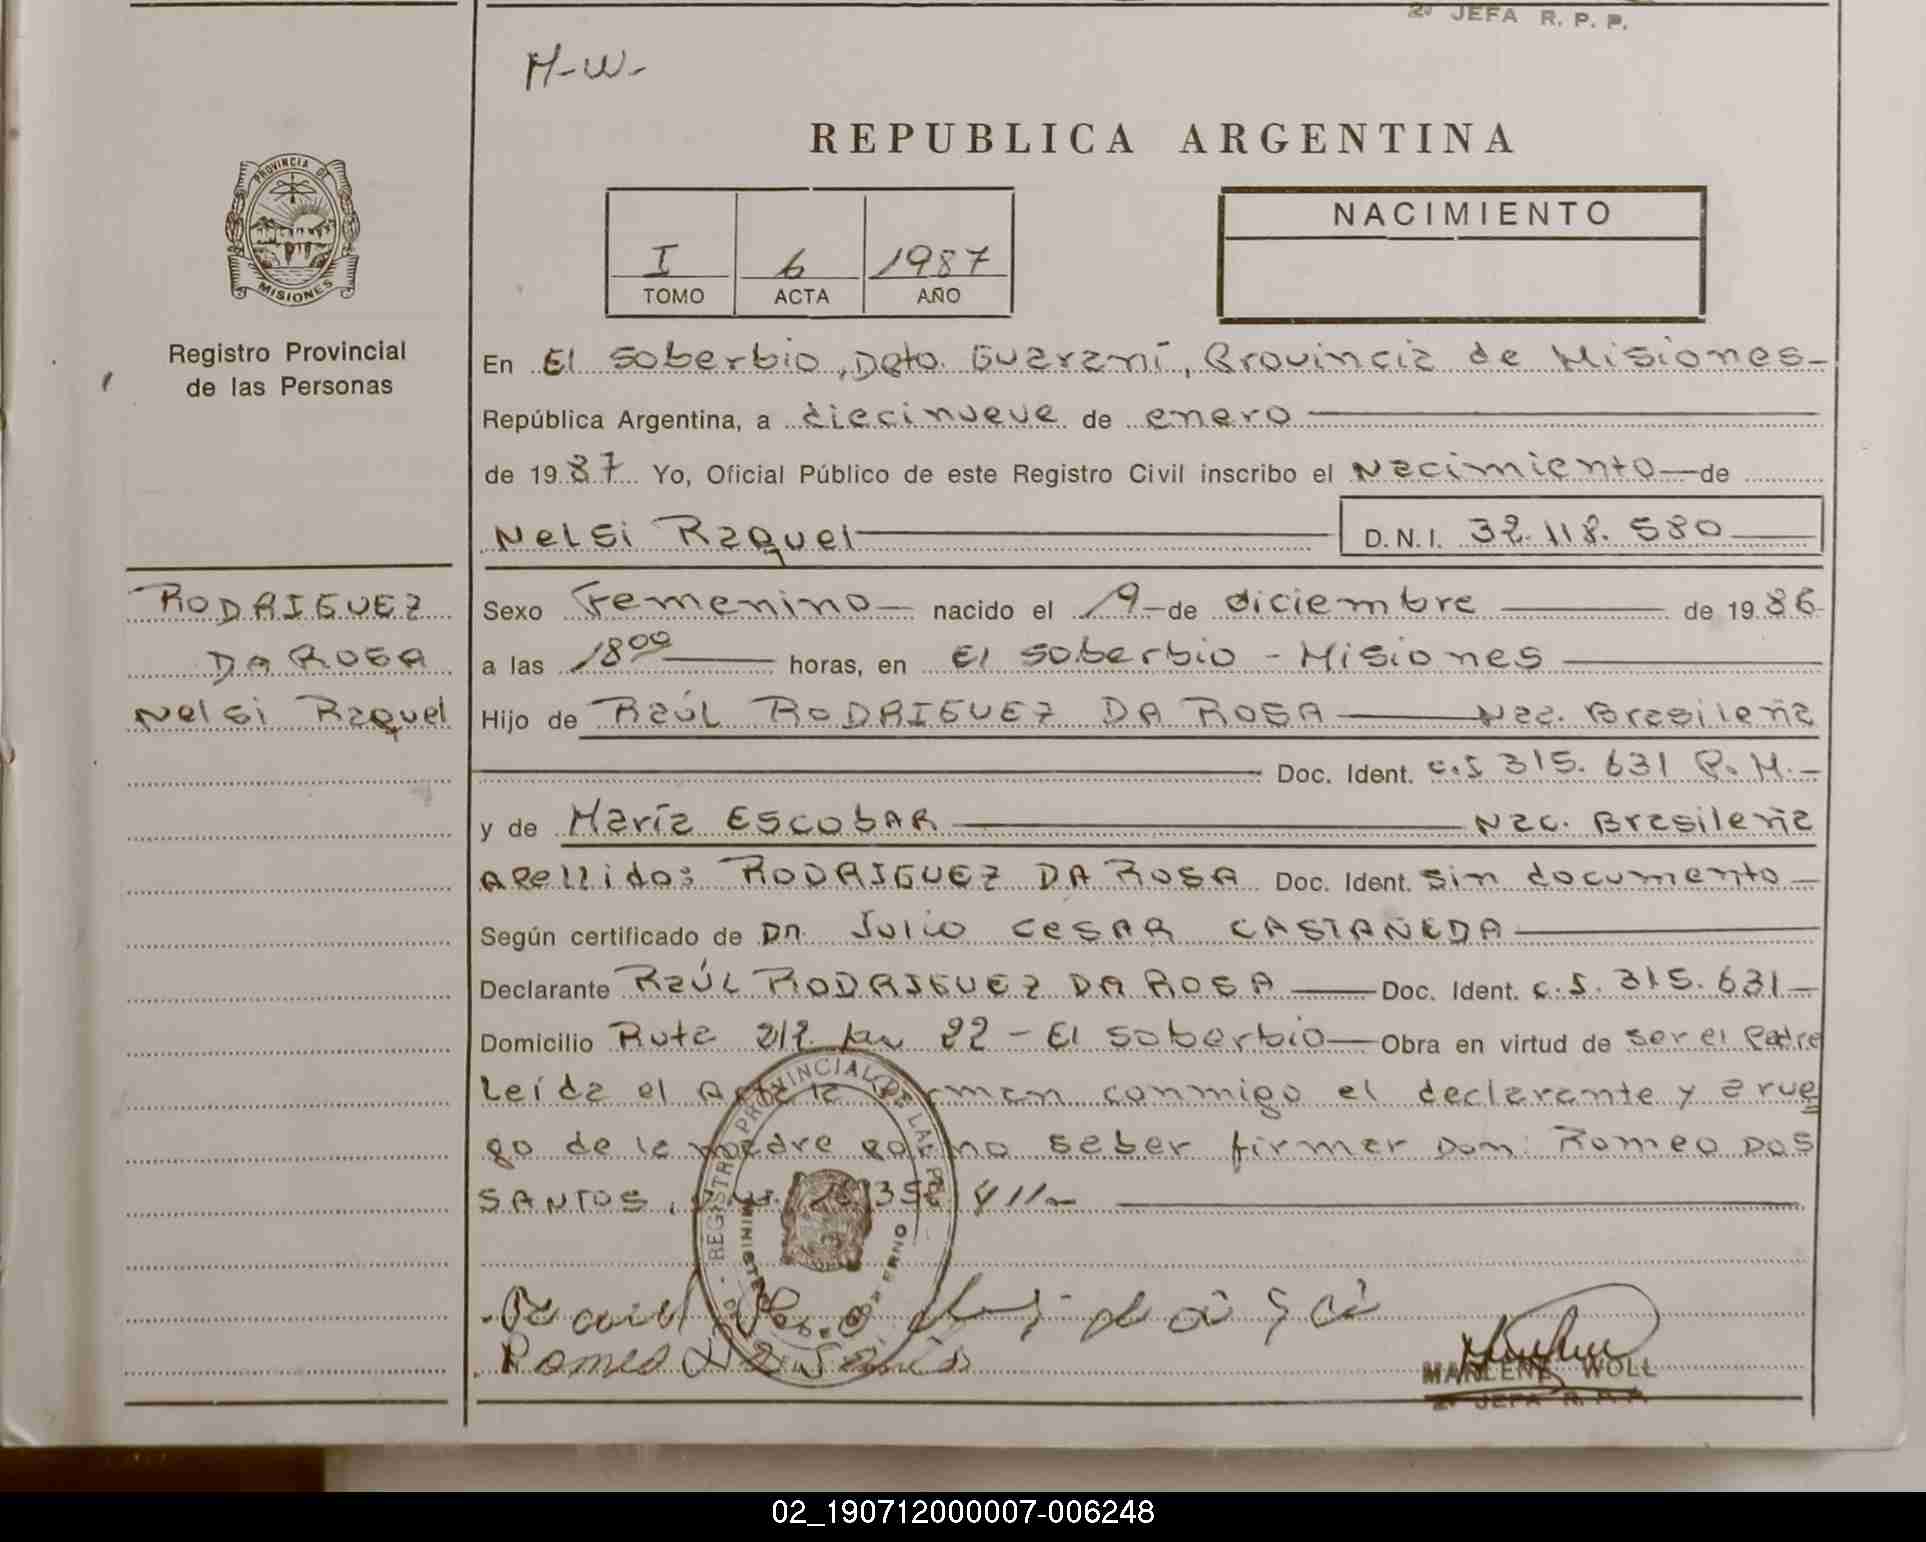 2º JEFA R. P. P.
M-W-
REPUBLICA ARGENTINA
PROVINCIA DE
MISIONES
Registro Provincial
de las Personas
I 6 1987
TOMO ACTA AÑO
NACIMIENTO
En El Soberbio, Dpto. Guaraní, Provincia de Misiones-
República Argentina, a diecinueve de enero
de 1987 Yo, Oficial Público de este Registro Civil inscribo el Nacimiento de
Nelsi Raquel D.N.I. 32.118.580
RODRIGUEZ
DA ROSA
Nelsi Raquel
Sexo Femenino nacido el 19 de diciembre de 1986
a las 18 00 horas, en El Soberbio - Misiones
Hijo de Raúl RODRIGUEZ DA ROSA Nac. Brasileña
Doc. Ident. C.I 315.631 P.M.-
y de María ESCOBAR Nac. Brasileña
Apellido: RODRIGUEZ DA ROSA Doc. Ident. Sin documento
Según certificado de Dr. Julio CESAR CASTAÑEDA
Declarante Raúl RODRIGUEZ DA ROSA Doc. Ident. C.I. 315.631
Domicilio Ruta 212 km 22 - El Soberbio Obra en virtud de ser el Padre
Leída el Acta la firman conmigo el declarante y a rue
go de la madre por no saber firmar Don: Romeo DOS
SANTOS,
REGISTRO PROVINCIAL DE LAS
Romeo
MARLENE WOLL
2º JEFA R. P. P.
02_190712000007-006248